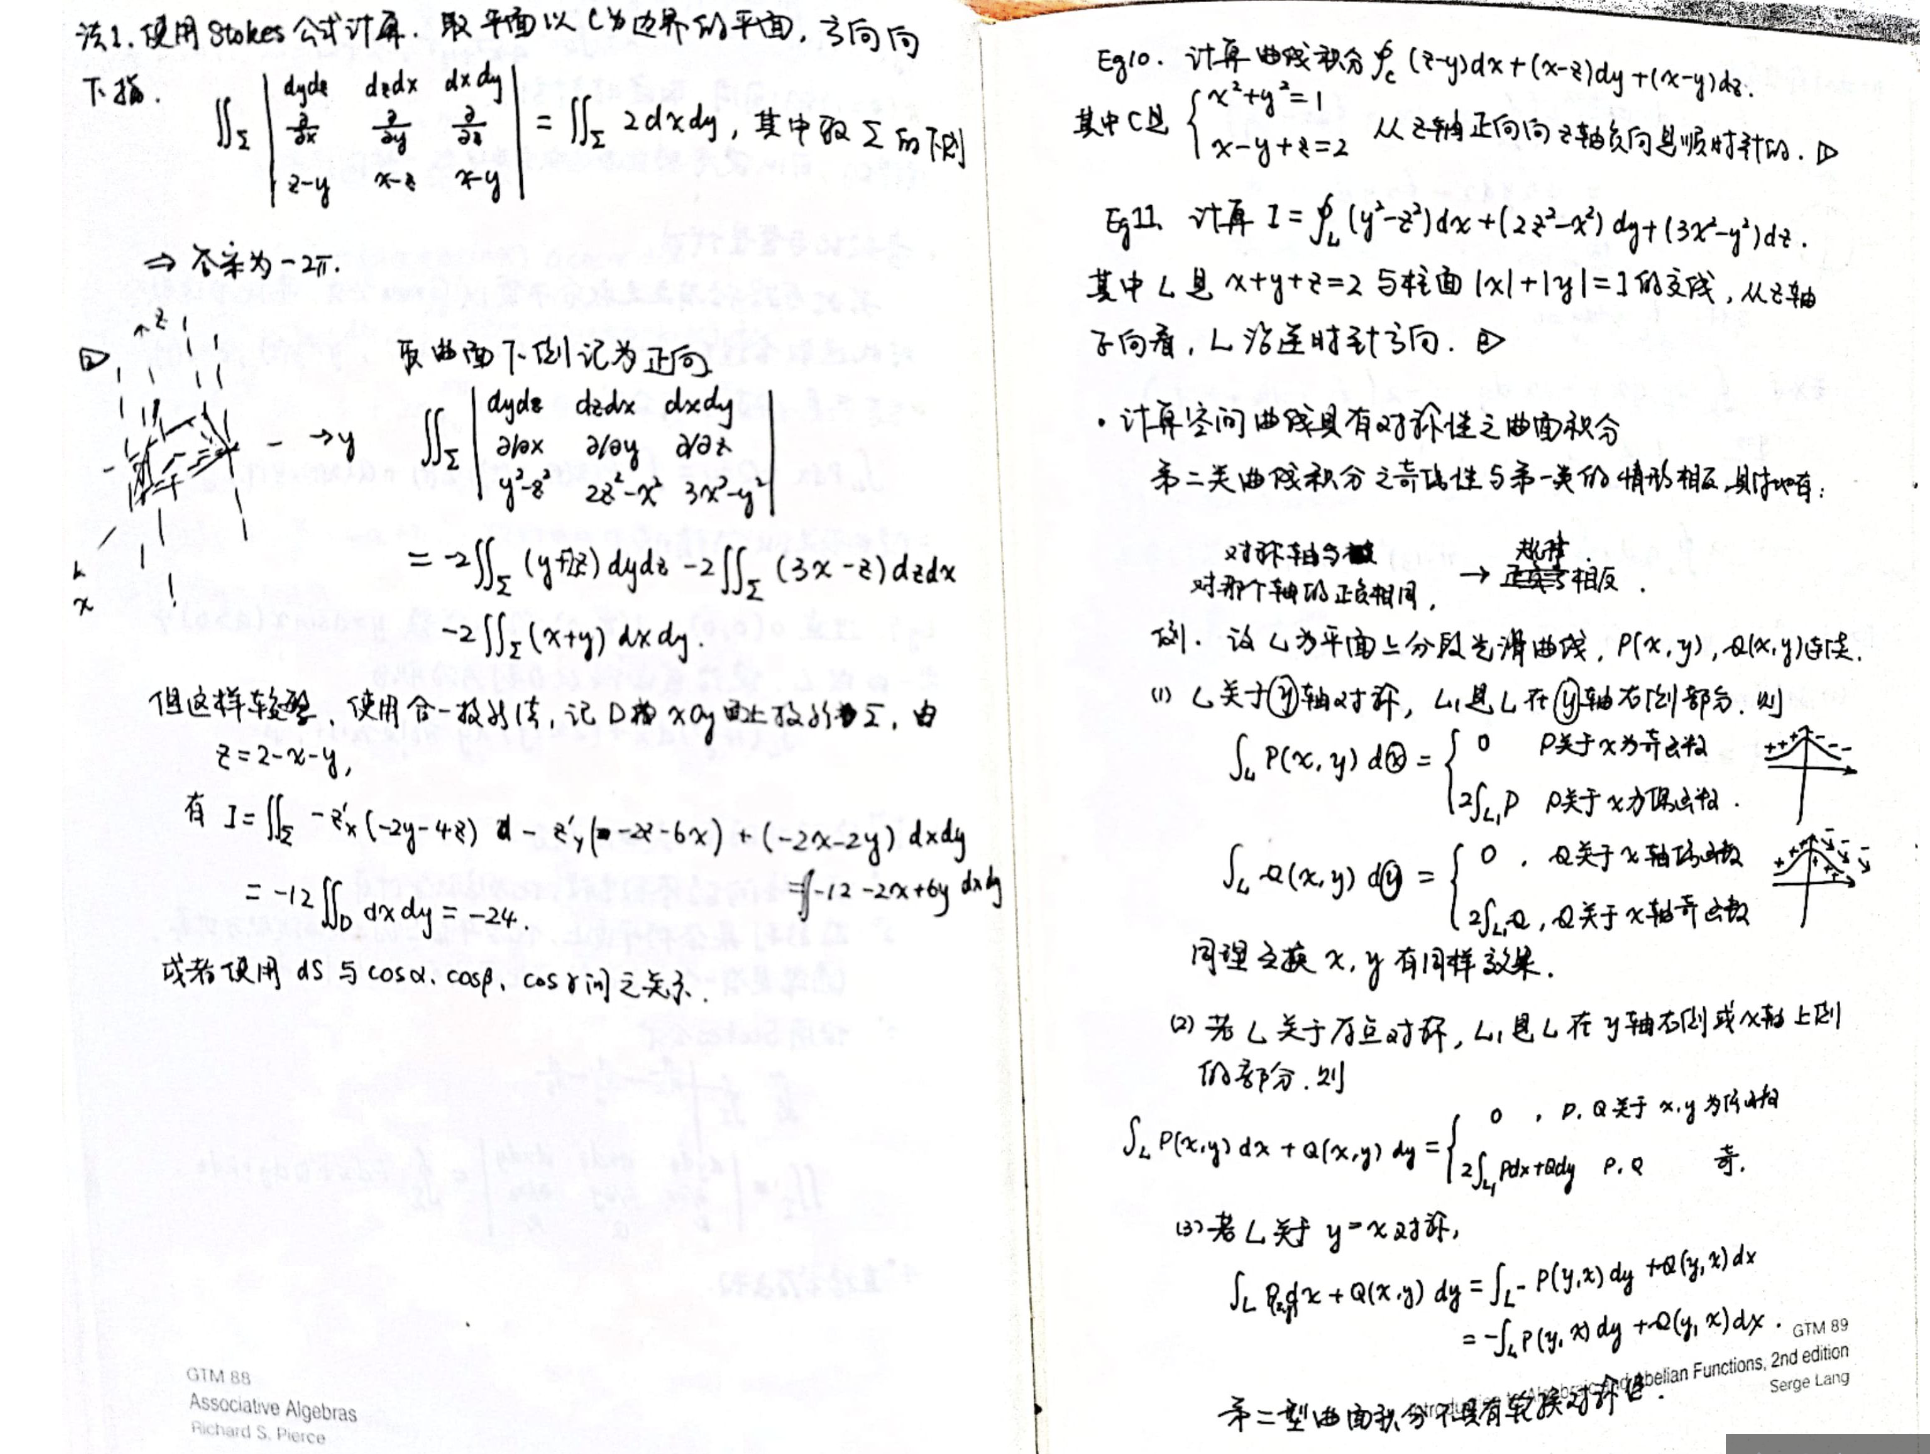 法1. 使用Stokes公式计算. 取平面以C为边界的平面, 方向向
下指.
∬_Σ | dydz dzdx dxdy ; ∂/∂x ∂/∂y ∂/∂z ; z-y x-z x-y | = ∬_Σ 2dxdy, 其中取Σ的下侧
⇒ 答案为 -2π.
z
y
x
取曲面下侧记为正向
∬_Σ | dydz dzdx dxdy ; ∂/∂x ∂/∂y ∂/∂z ; y²-z² 2z²-x² 3x²-y² |
= -2∬_Σ (y+2z) dydz -2∬_Σ (3x-z) dzdx
-2∬_Σ (x+y) dxdy.
但这样较, 使用合一投影法, 记D为xOy面上投影Σ, 由
z=2-x-y,
有 I=∬_Σ -z'ₓ(-2y-4z) d - z'ᵧ(-2z-6x) + (-2x-2y) dxdy
=∬-12-2x+6y dxdy
= -12∬_D dxdy = -24.
或者使用 dS 与 cosα, cosβ, cosγ 间之关系.
GTM 88
Associative Algebras
Richard S. Pierce
Eg10. 计算曲线积分 ∮_C (z-y)dx+(x-z)dy+(x-y)dz.
其中C是 { x²+y²=1 ; x-y+z=2 从z轴正向向z轴负向是顺时针的. ▷
Eg11. 计算 I=∮_L (y²-z²)dx+(2z²-x²)dy+(3x²-y²)dz.
其中L是 x+y+z=2 与柱面 |x|+|y|=1 的交线, 从z轴
正向看, L沿逆时针方向. ▷
· 计算空间曲线具有对称性之曲面积分
第二类曲线积分之奇偶性与第一类的情形相反, 具体地有:
对称轴与
对那个轴的正负相同, → 相反.
例. 设L为平面上分段光滑曲线, P(x,y), Q(x,y)连续.
(1) L关于y轴对称, L₁是L在y轴右侧部分. 则
∫_L P(x,y) dx = { 0 P关于x为奇函数 ; 2∫_{L₁}P P关于x为偶函数.
++ --
∫_L Q(x,y) dy = { 0, Q关于x轴偶函数 ; 2∫_{L₁}Q, Q关于x轴奇函数
同理交换 x, y 有同样效果.
(2) 若L关于原点对称, L₁是L在y轴右侧或x轴上侧
的部分. 则
∫_L P(x,y)dx+Q(x,y)dy = { 0, P.Q关于 x,y 为偶函数 ; 2∫_{L₁} Pdx+Qdy P.Q 奇.
(3) 若L关于 y=x 对称,
∫_L P(x,y)dx + Q(x,y) dy = ∫_L - P(y,x) dy + Q(y,x) dx
= -∫_L P(y,x) dy + Q(y,x) dx.
GTM 89
Introduction to Algebraic and Abelian Functions, 2nd edition
Serge Lang
第二型曲面积分不具有轮换对称性.